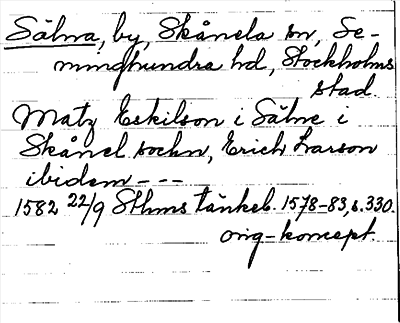 Sälna, by, Skånela sn, Se-
minghundra hd, Stockholms
stad.
Matz Eskilson i Sälne i
Skånel sochn, Erich Larson
ibidem - - -
1582 22/9 Sthms tänkeb. 1578-83, s. 330.
orig-koncept.